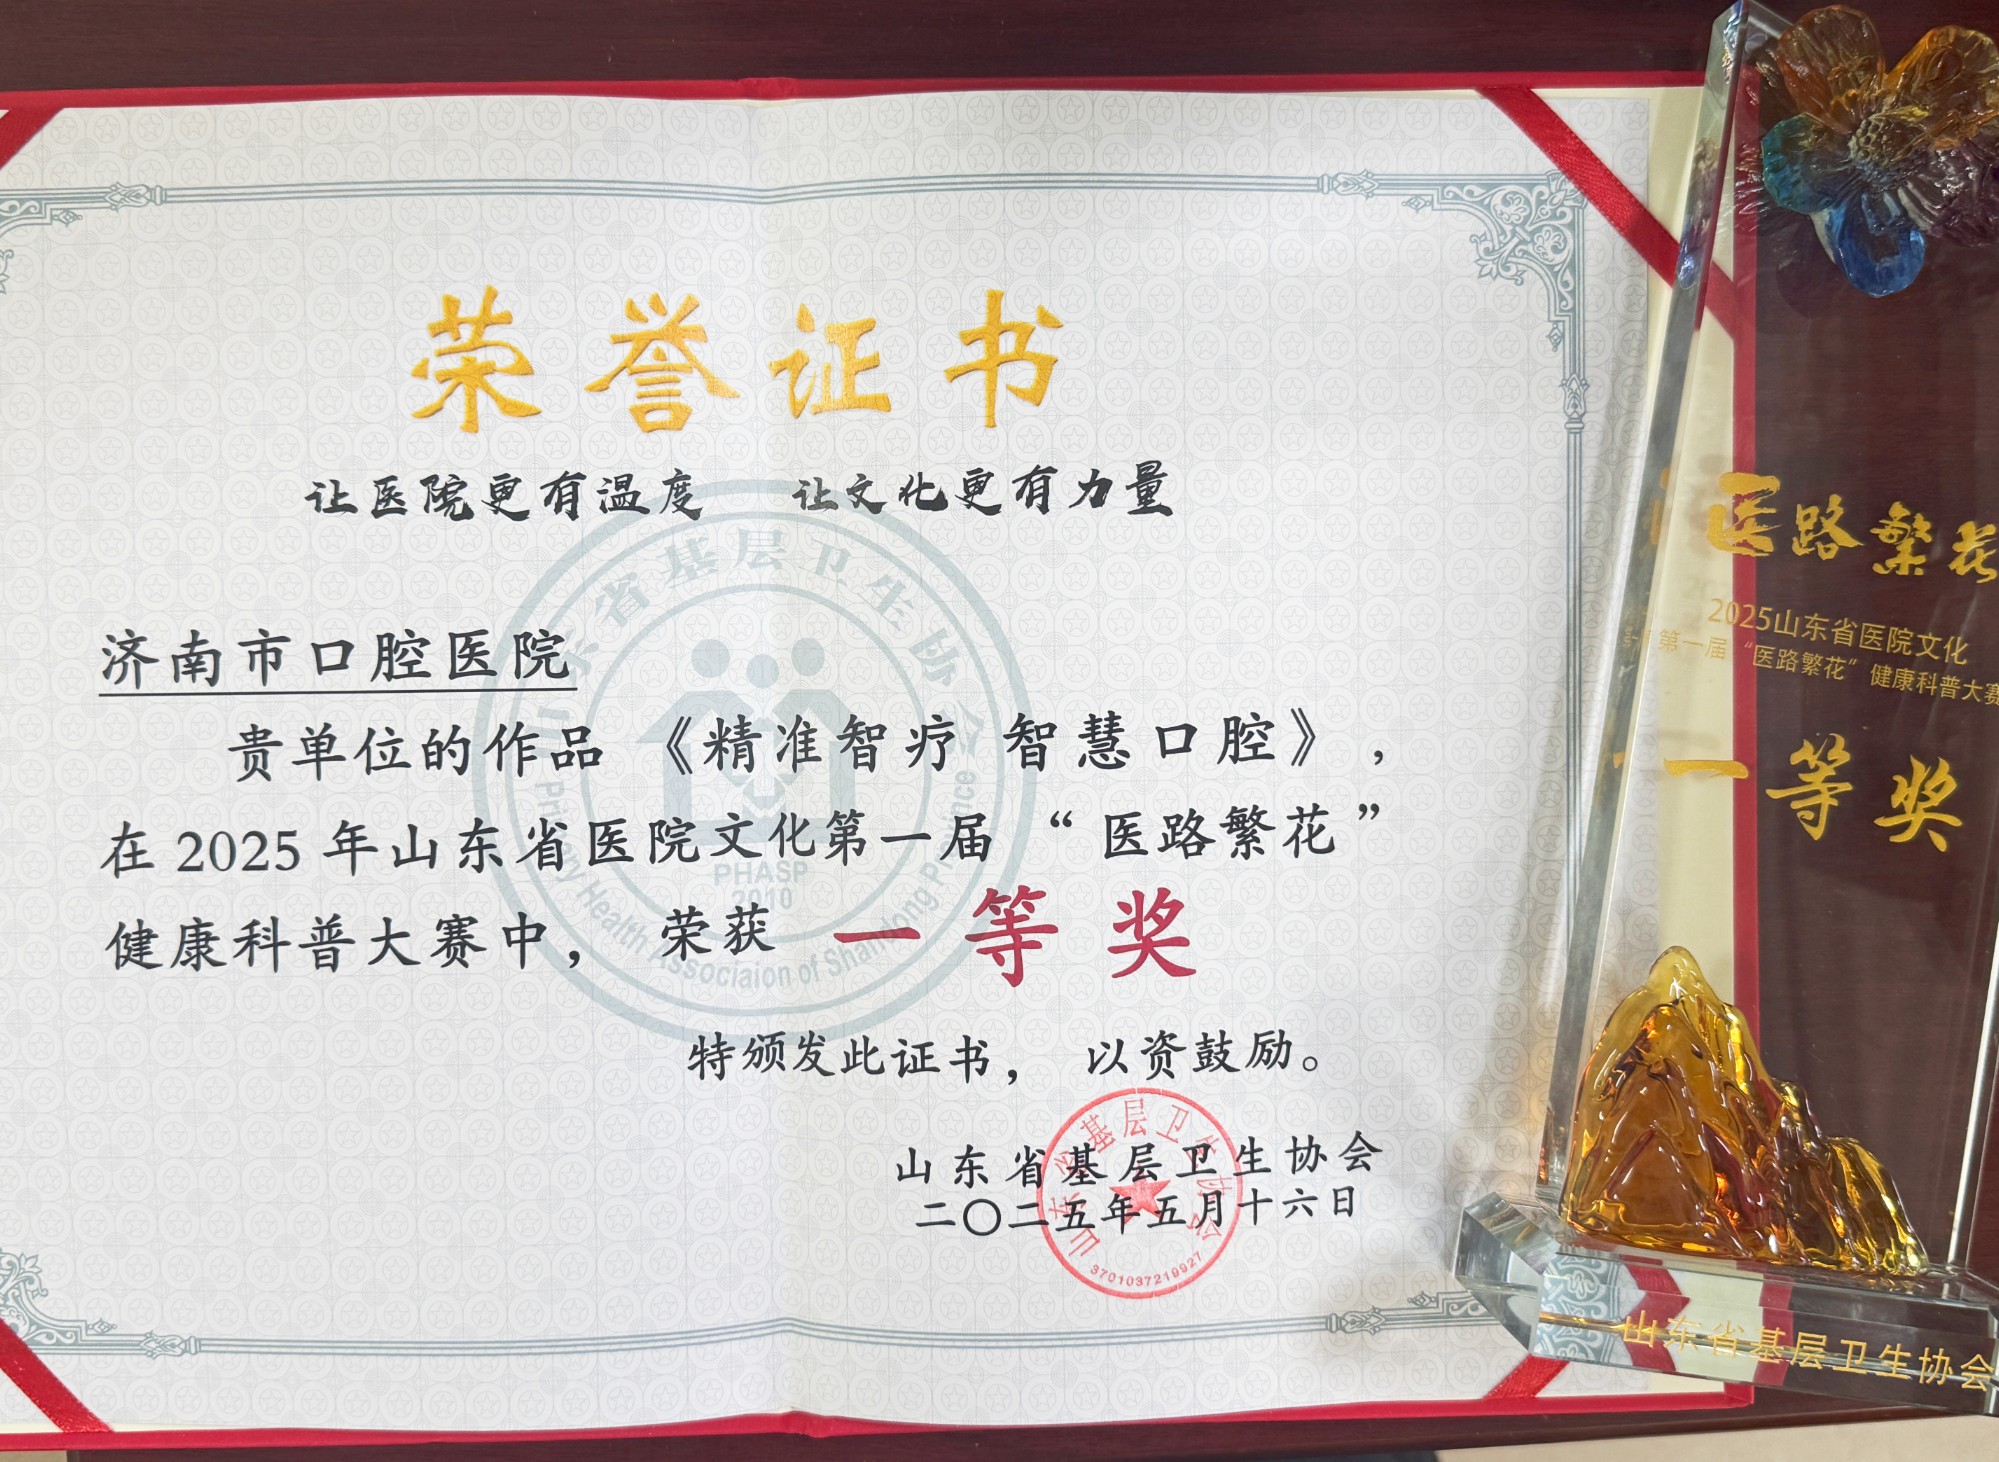 荣誉证书
让医院更有温度 让文化更有力量
济南市口腔医院
贵单位的作品《精准智疗 智慧口腔》,
在2025年山东省医院文化第一届“医路繁花”
健康科普大赛中，荣获 一等奖
特颁发此证书，以资鼓励。
山东省基层卫生协会
二〇二五年五月十六日
山东省基层卫生协会
3701037219927
山东省基层卫生协会
Primary Health Associaion of Shandong Province
PHASP
2010
医路繁花
2025山东省医院文化
第一届“医路繁花”健康科普大赛
一等奖
山东省基层卫生协会